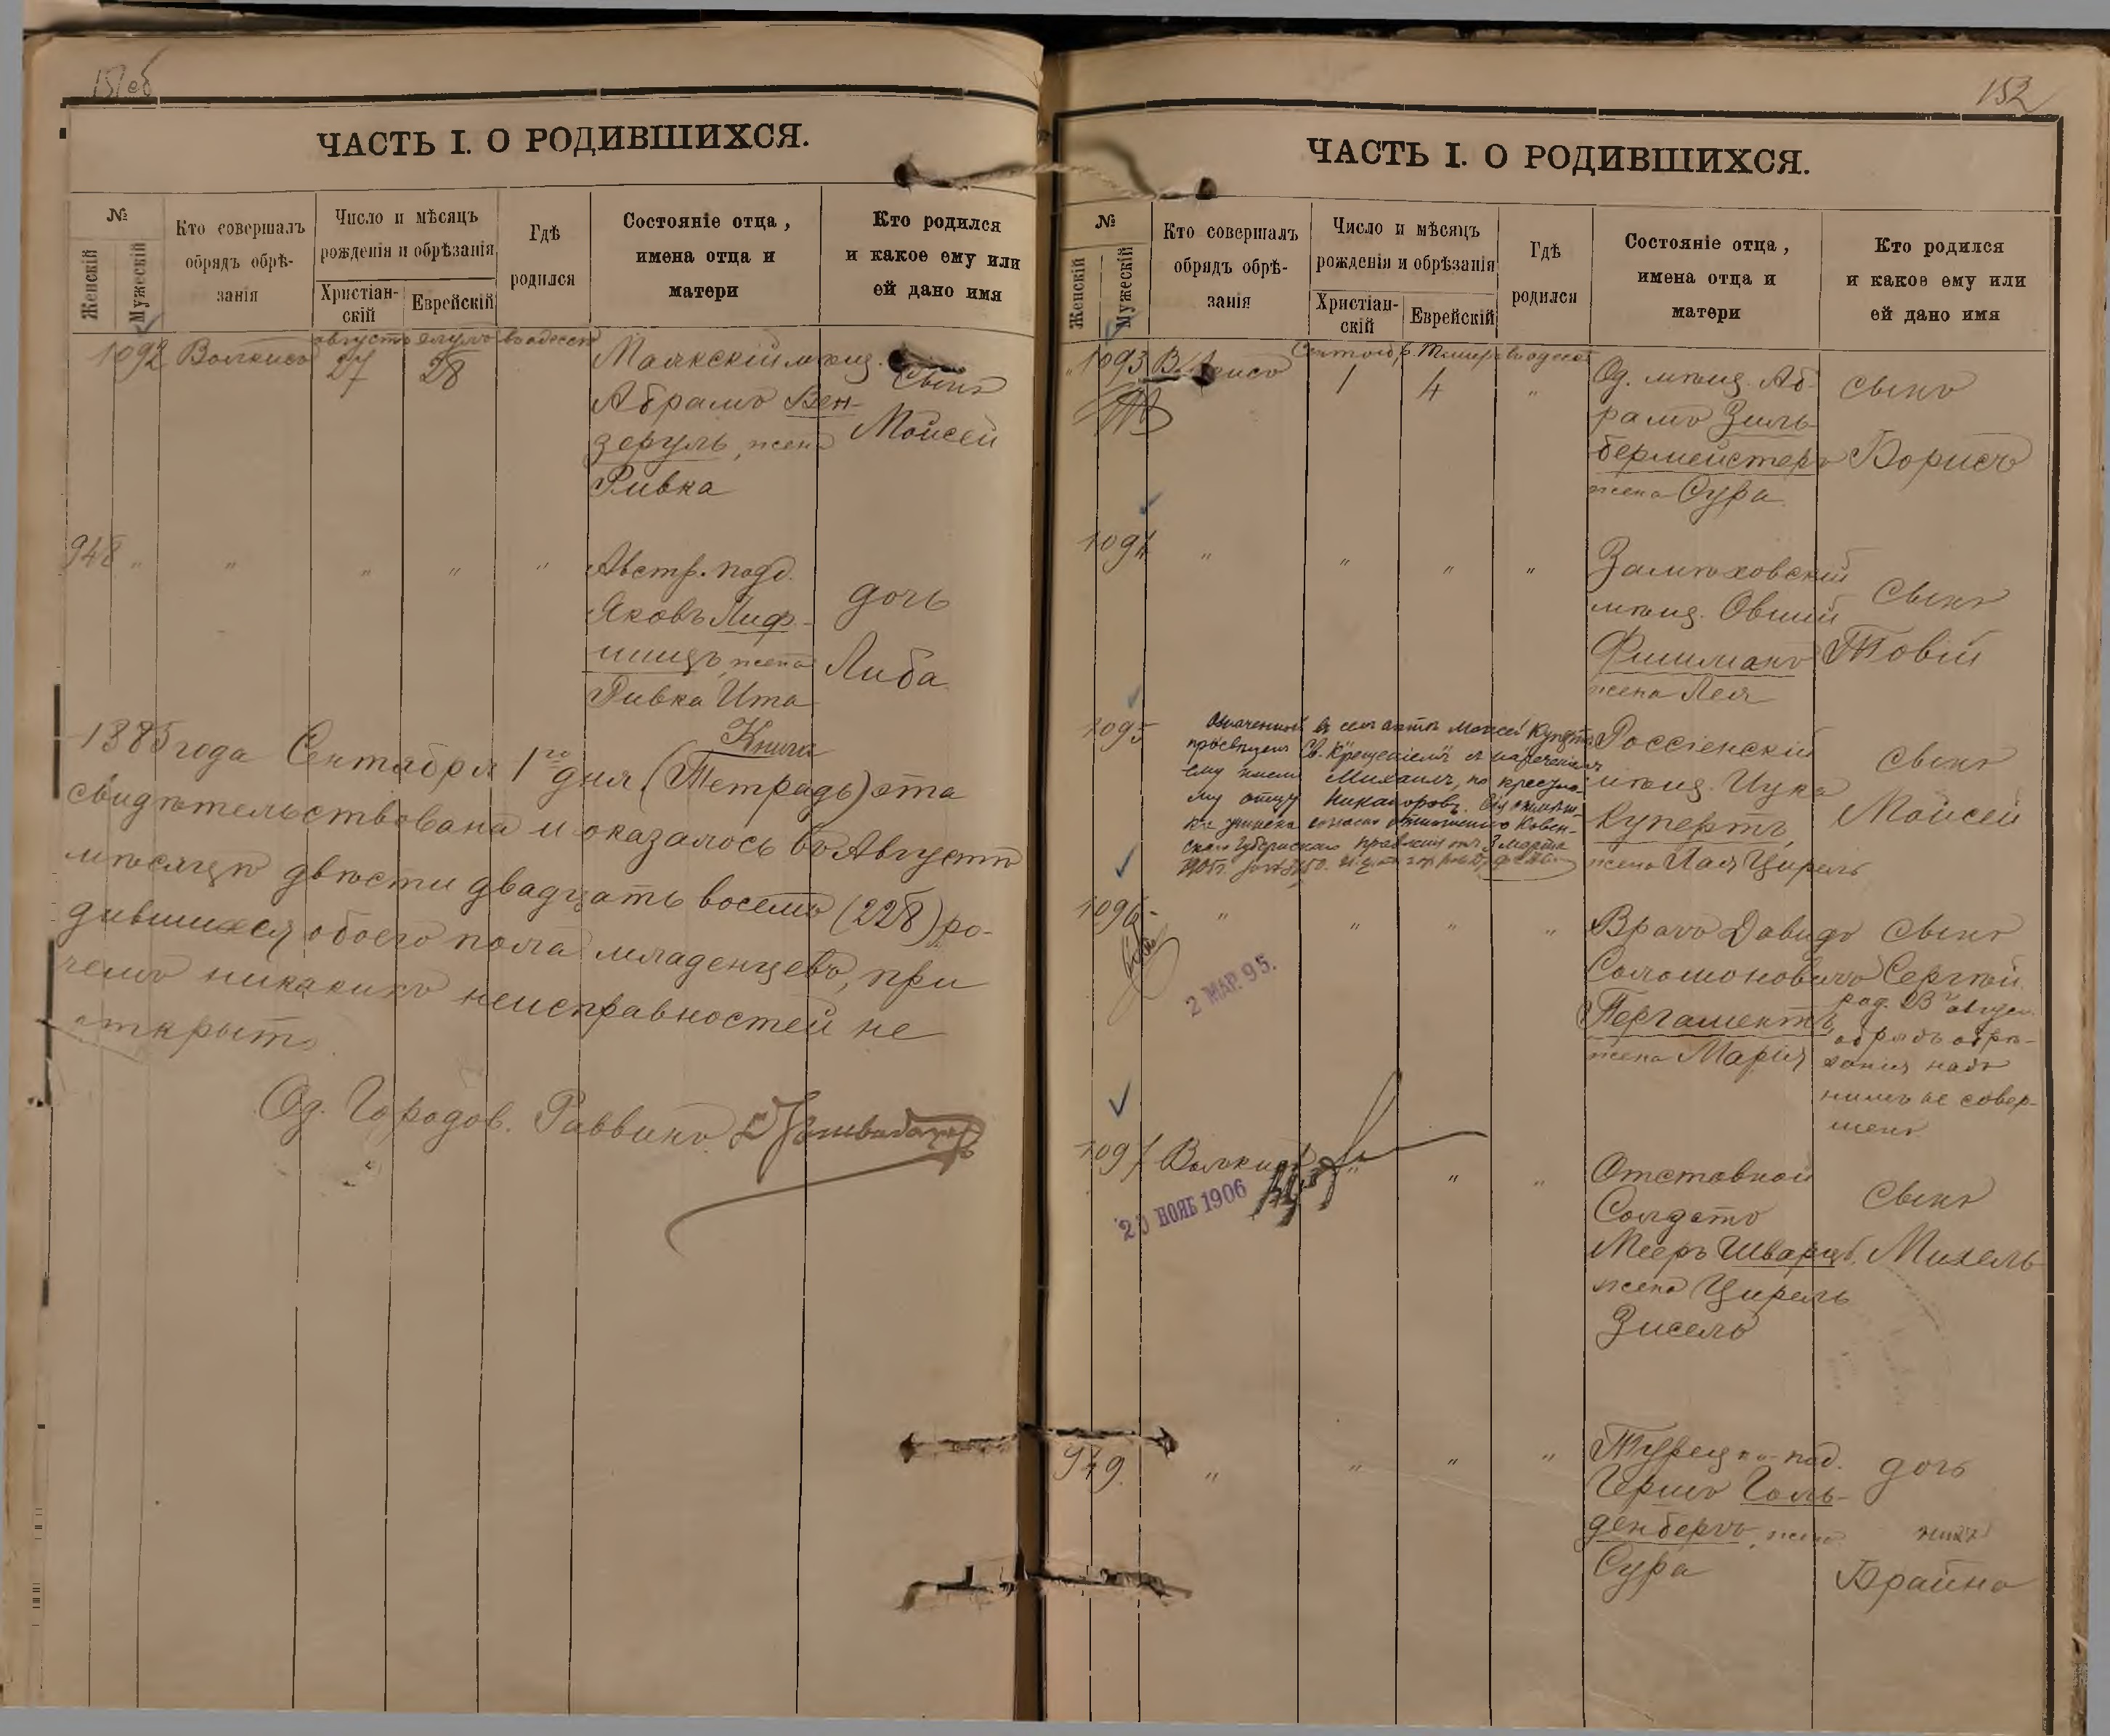 151об
ЧАСТЬ I. О РОДИВШИХСЯ.
№
Женскій
Мужескій
Кто совершалъ
обрядъ обрѣ-
занія
Число и мѣсяцъ
рожденія и обрѣзанія
Христіан-
скій
Еврейскій
Гдѣ
родился
Состояніе отца,
имена отца и
матери
Кто родился
и какое ему или
ей дано имя
августъ елулъ въ Одессѣ
1092 Волкисъ 27 28
Маякскій мѣщ.
Абрамъ Бен-
зеруль, жена
Ривка
сынъ
Моисей
948 " " " " "
Австр. подд.
Яковъ Лиф-
шицъ, жена
Ривка Ита
дочь
Либа
Книга
1885 года Сентября 1го дня (Тетрадь) эта
свидѣтельствована и оказалось въ Августѣ
мѣсяцѣ двѣсти двадцать восемь (228) ро-
дившихся обоего пола младенцевъ, при
чемъ никакихъ неисправностей не
открыто
Од. Городов. Раввинъ
152
ЧАСТЬ I. О РОДИВШИХСЯ.
№
Женскій
Мужескій
Кто совершалъ
обрядъ обрѣ-
занія
Число и мѣсяцъ
рожденія и обрѣзанія
Христіан-
скій
Еврейскій
Гдѣ
родился
Состояніе отца,
имена отца и
матери
Кто родился
и какое ему или
ей дано имя
въ Одессѣ
1093 1 4 "
Од. мѣщ. Аб-
рамъ Зиль-
бермейстеръ
жена Сура
сынъ
Борисъ
1094 " " " "
мѣщ. Овшій
Фишманъ
жена Лея
сынъ
Товій
1095
Означенный въ семъ актѣ Моисей Купертъ
просвѣщенъ Св. Крещеніемъ съ нареченіемъ
ему имени Михаилъ, по крестно-
му отцу Никаноровъ.
согласно отношенію Ковен-
скаго Губернскаго Правленія отъ 3 Марта
1905 г.
Россіенскій
мѣщ. Ицка
Купертъ,
жена Хая Цирель
сынъ
Моисей
1096 " " " "
2 МАР. 95.
Врачъ Давидъ
Соломоновичъ
Пергаментъ,
жена Марія
сынъ
Сергѣй.
род. 23го август.
обрядъ обрѣ-
занія надъ
нимъ не совер-
шенъ
1097 Волкисъ " " "
20 НОЯБ 1906
Отставной
Солдатъ
Мееръ Шварцъ,
жена Цирель
Зисель
сынъ
Михель
949. " " " "
Турецко-под.
Гершъ Голь-
денбергъ, жена
Сура
дочь
Брайна